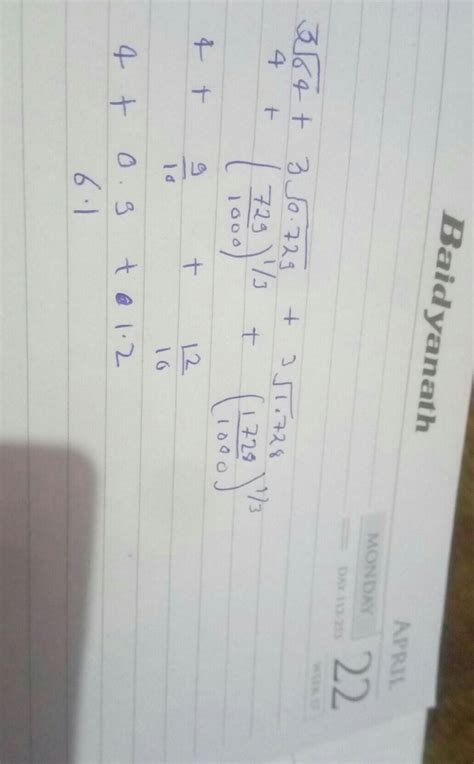 Baidyanath
APRIL
MONDAY
22
DAY 112-253
WEEK 17
3√64 + 3√0.729 + 3√1.728
4 + (729/1000)^1/3 + (1729/1000)^1/3
4 + 9/10 + 12/10
4 + 0.9 + 1.2
6.1